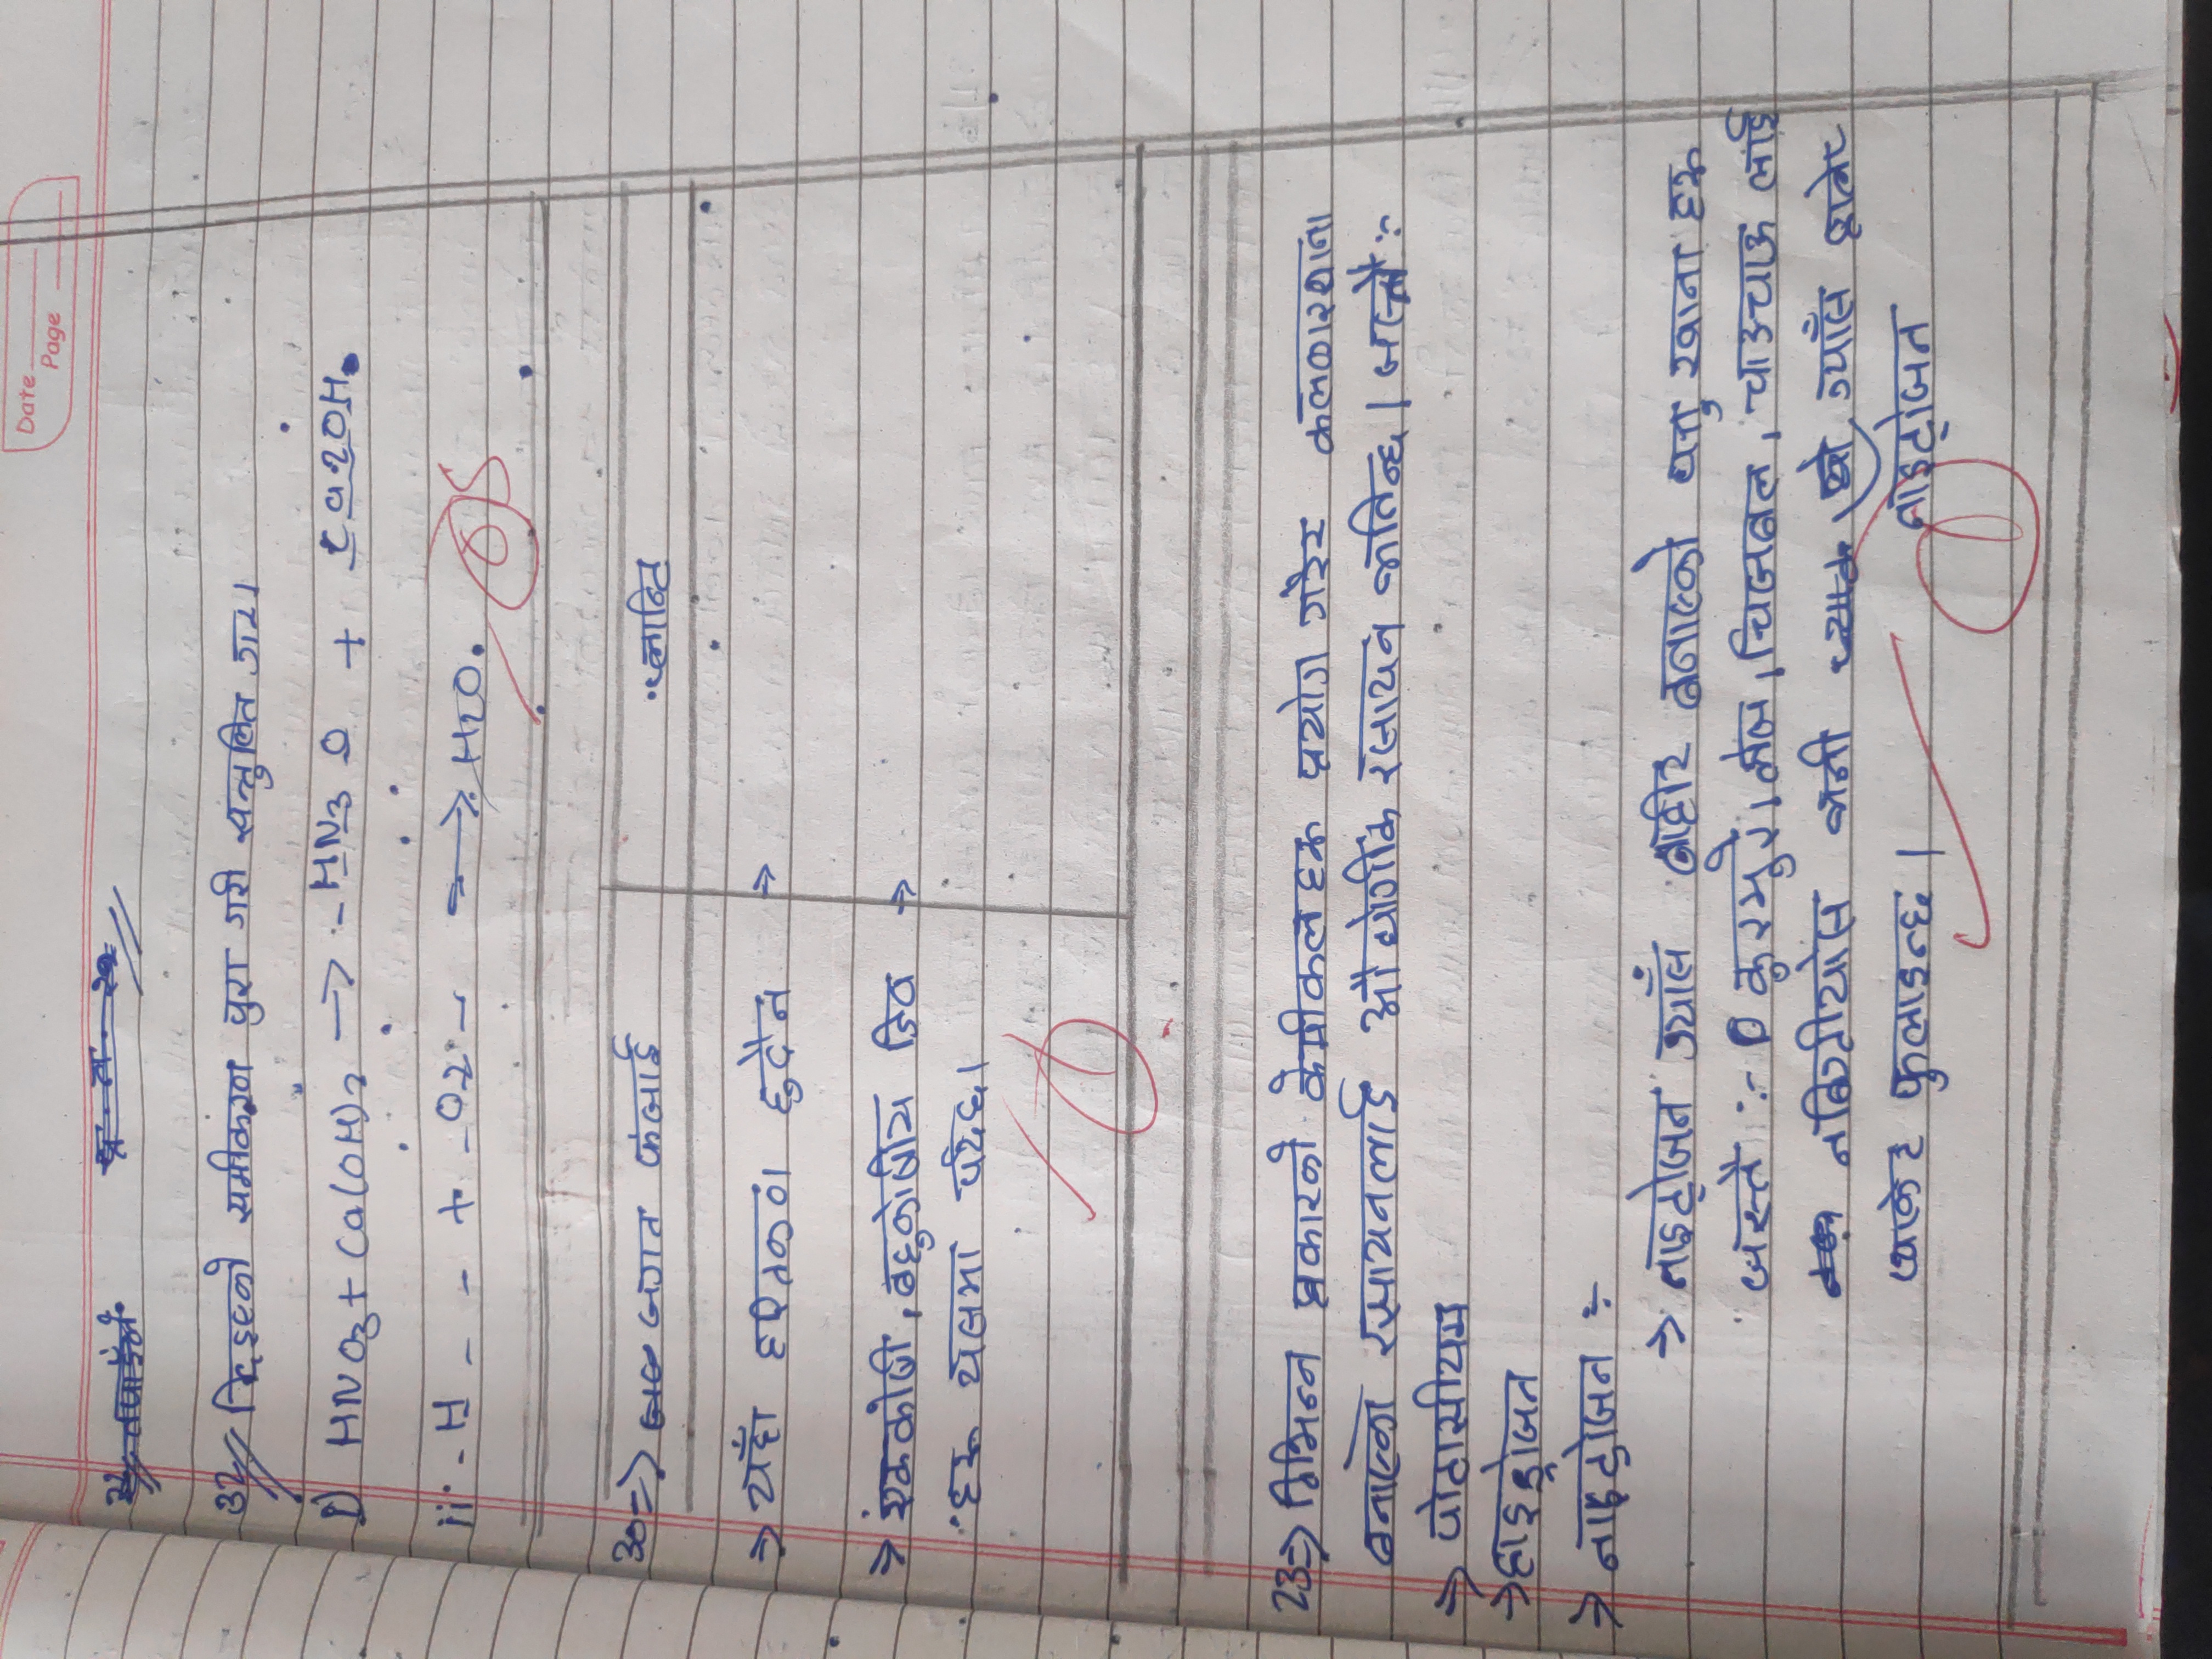 Date
Page
प्र. न. 22
32 दिइएको समीकरण पुरा गरी सन्तुलित गर।
i) HNO3 + Ca(OH)2 → - HN3 O + Ca2OH.
ii. - H - - + - O2 - → H2O.
0.5
30 => जगत फंजाई
प्लान्टि
→ यहाँ हरितकण हुदैन →
→ एककोषी, बहुकोषीय जिव →
हरू यसमा पर्दछ।
1
23 => विभिन्न प्रकारको केमीकलहरू प्रयोग गरेर कलकारखाना
बनाएको रसायनलाई औद्योगीक रसायन भनिन्छ। जस्तै :-
→ पोटासीयम
→ हाइड्रोजन
→ नाइट्रोजन :-
→ नाइट्रोजन ग्याँस बाहीर बनाएको खाना हरू
जस्तै :- कुरमुरे, लेज, चिजबल, चाउचाउ लाई
नबिग्रीयोस भनी यो ग्याँस हालेर
प्याकेट फुलाइन्छ।
नाइट्रोजन
1